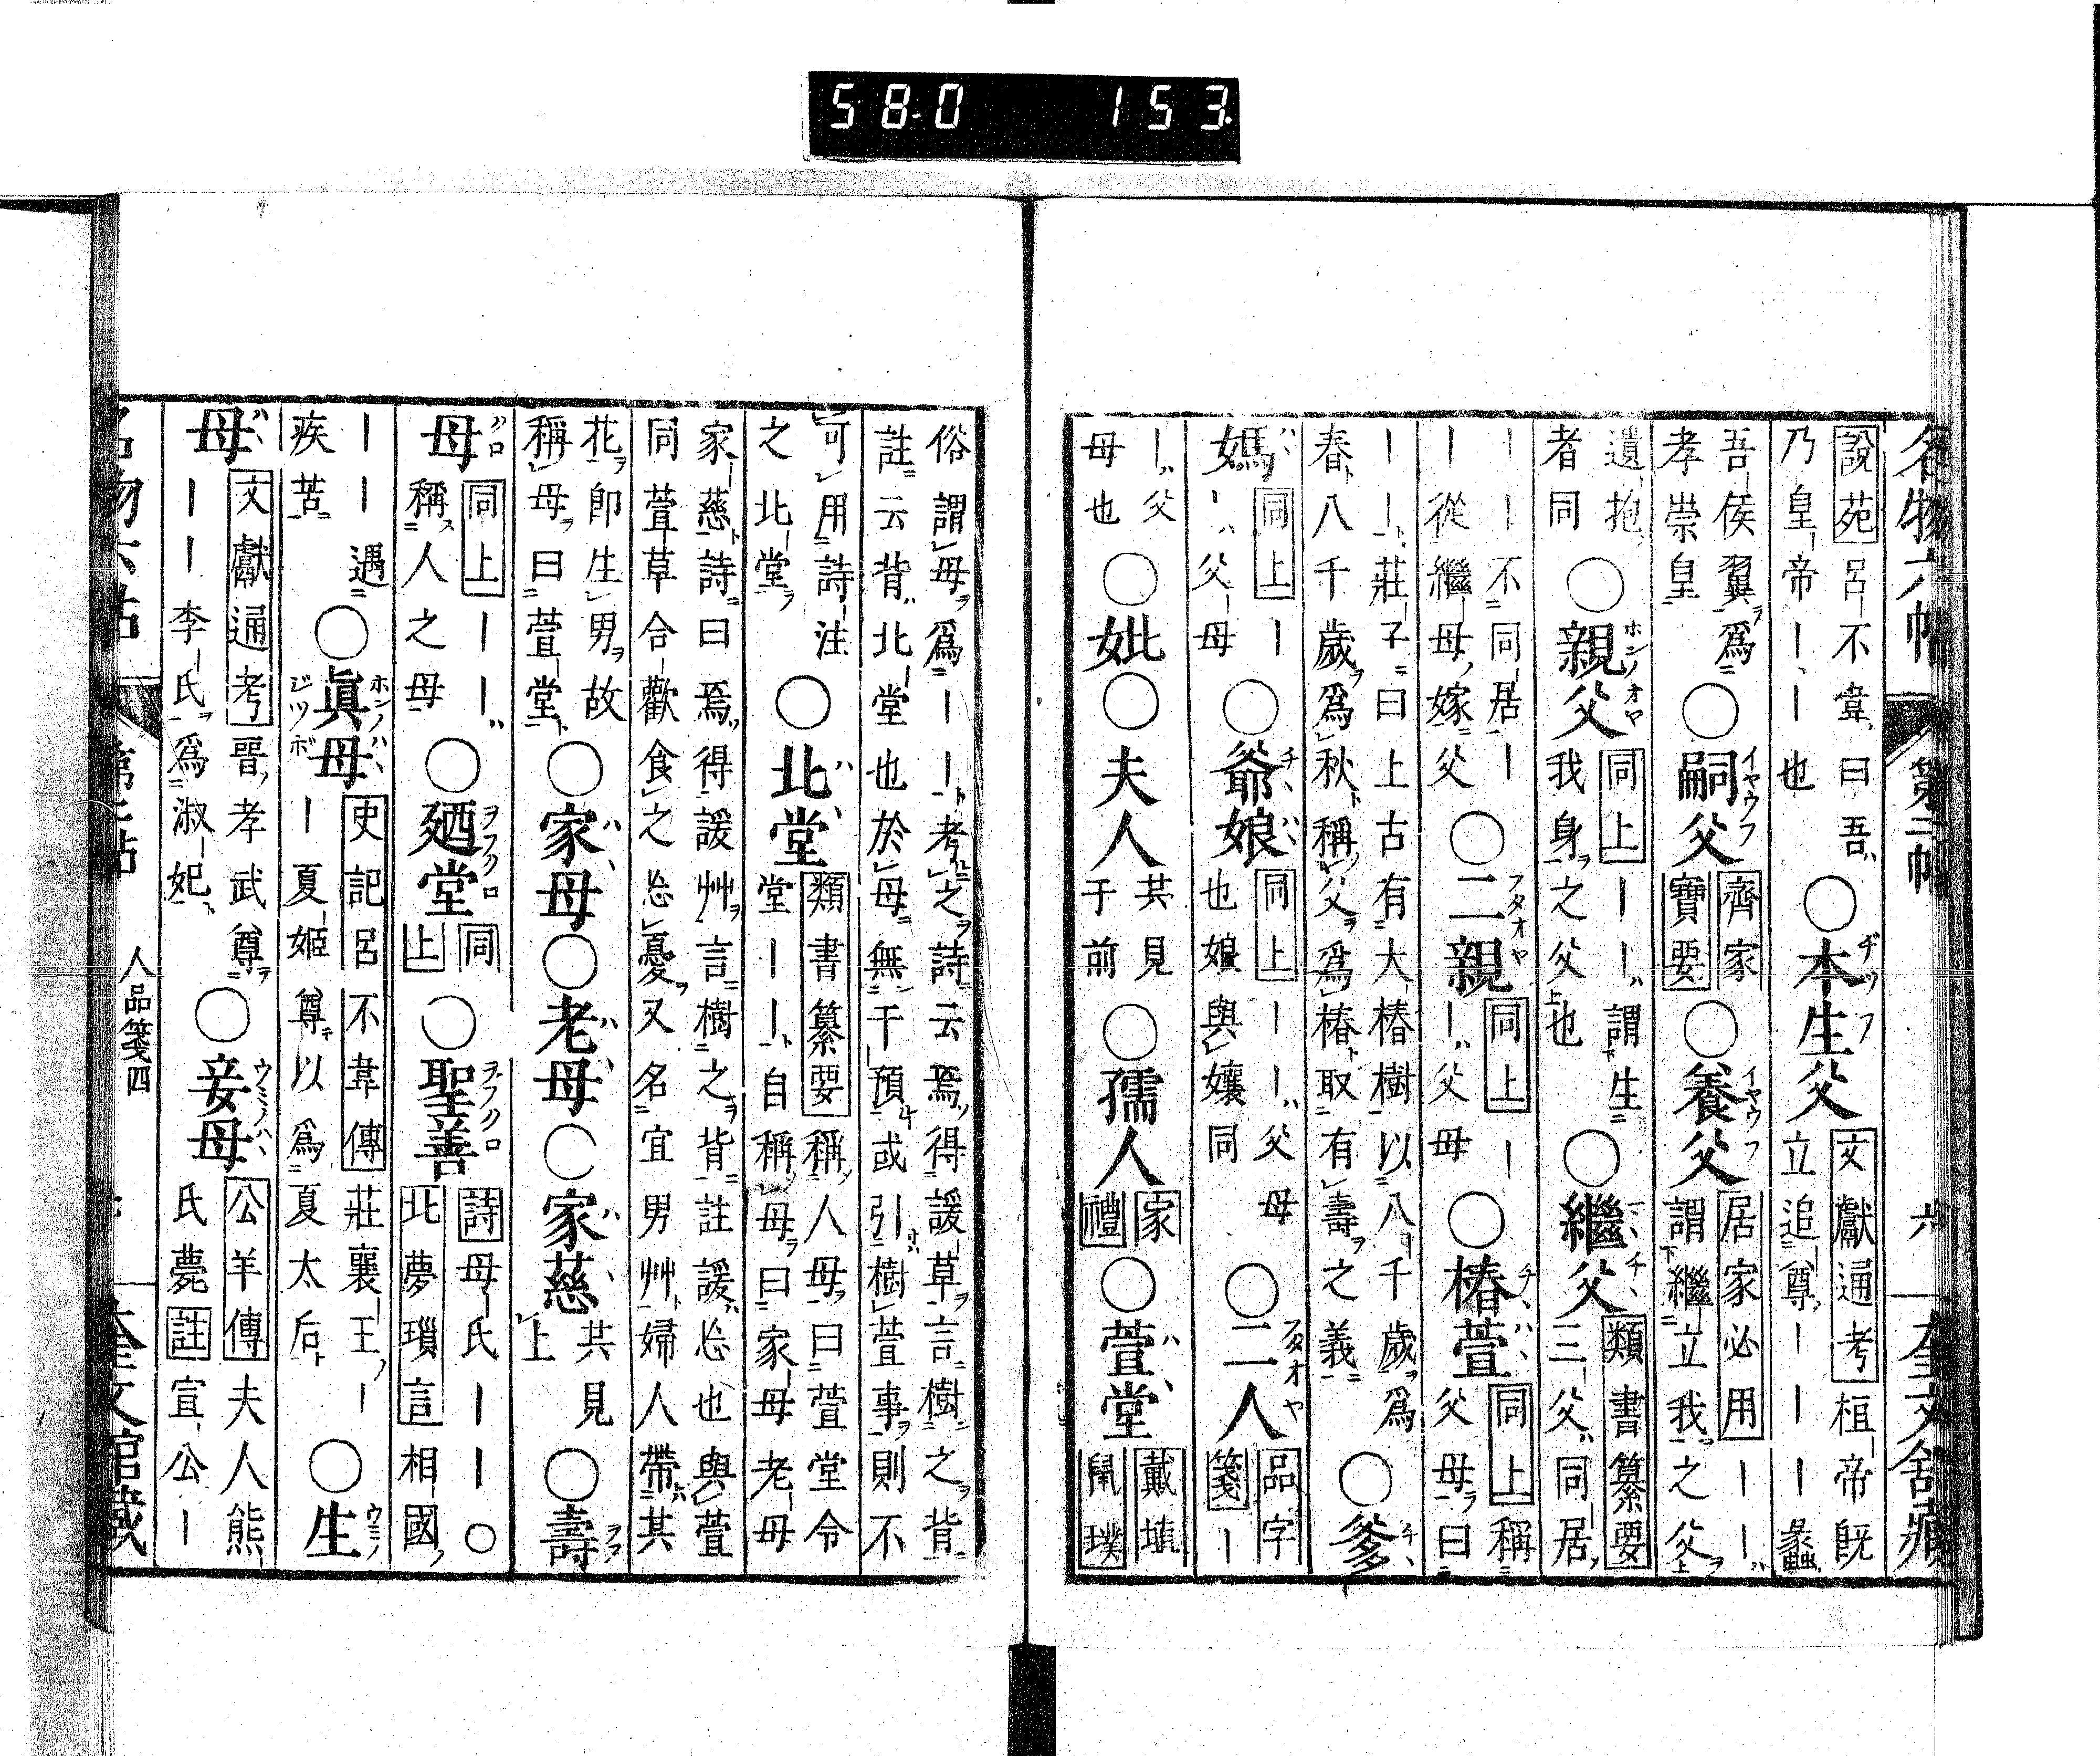 58.0 153.
名物六帖 第二帖 六 奎文舘藏
說苑呂不韋曰吾乃皇帝ーー也○本生父文獻通考桓帝既立追尊ーーー蠡
吾侯翼爲孝崇皇○嗣父齊家寶要○養父居家必用ーー謂繼立我之父
遺抱者同○親父同上ーー謂生我身之父也○繼父類書纂要三父同居
ーー不同居ーー從繼母嫁父○二親同上ーー父母○椿萱同上稱父母曰
ーー莊子曰上古有大椿樹以八千歲爲春八千歲爲秋稱父爲椿取有壽之義○爹
媽同上ーー父母○爺娘同上ーー父母也娘與孃同○二人品字箋ー
ー父母也○妣○夫人共見于前○孺人家禮○萱堂戴埴鼠璞
俗謂母爲ーー考之詩云焉得諼草言樹之背註云背北堂也於母無干預或引樹萱事則不
可用詩注之北堂○北堂類書纂要稱人母曰萱堂令堂ーー自稱母曰家母老母
家慈詩曰焉得諼艸言樹之背註諼忘也與萱同萱草合歡食之忘憂又名宜男艸婦人帶其
花卽生男故稱母曰萱堂○家母○老母○家慈共見上○壽
母同上ーー稱人之母○廼堂同上○聖善詩母氏ーー○北夢瑣言相國
ーー遇疾苦○眞母史記呂不韋傳莊襄王ーー夏姬尊以爲夏太后○生
母文獻通考晉孝武尊ーー李氏爲淑妃○妾母公羊傳夫人熊氏薨註宣公ー
名物六帖 第二帖 人品箋四 奎文舘藏